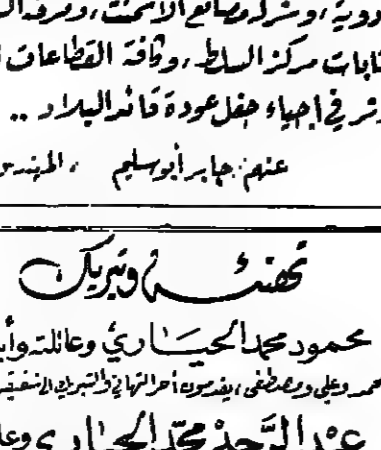 دوية ، وشركة مصانع الاسمنت ، وغرفة
نقابات مركز السلط ، وكافة القطاعات
في إحياء حفل عودة قائد البلاد ..
عنهم : جابر أبو سليم ، المهندس
تهنئة وتبريك
محمود محمد الحياري وعائلته
وعلي ومصطفى ، يقدمون أحر التهاني والتبريك
محمد الحياري